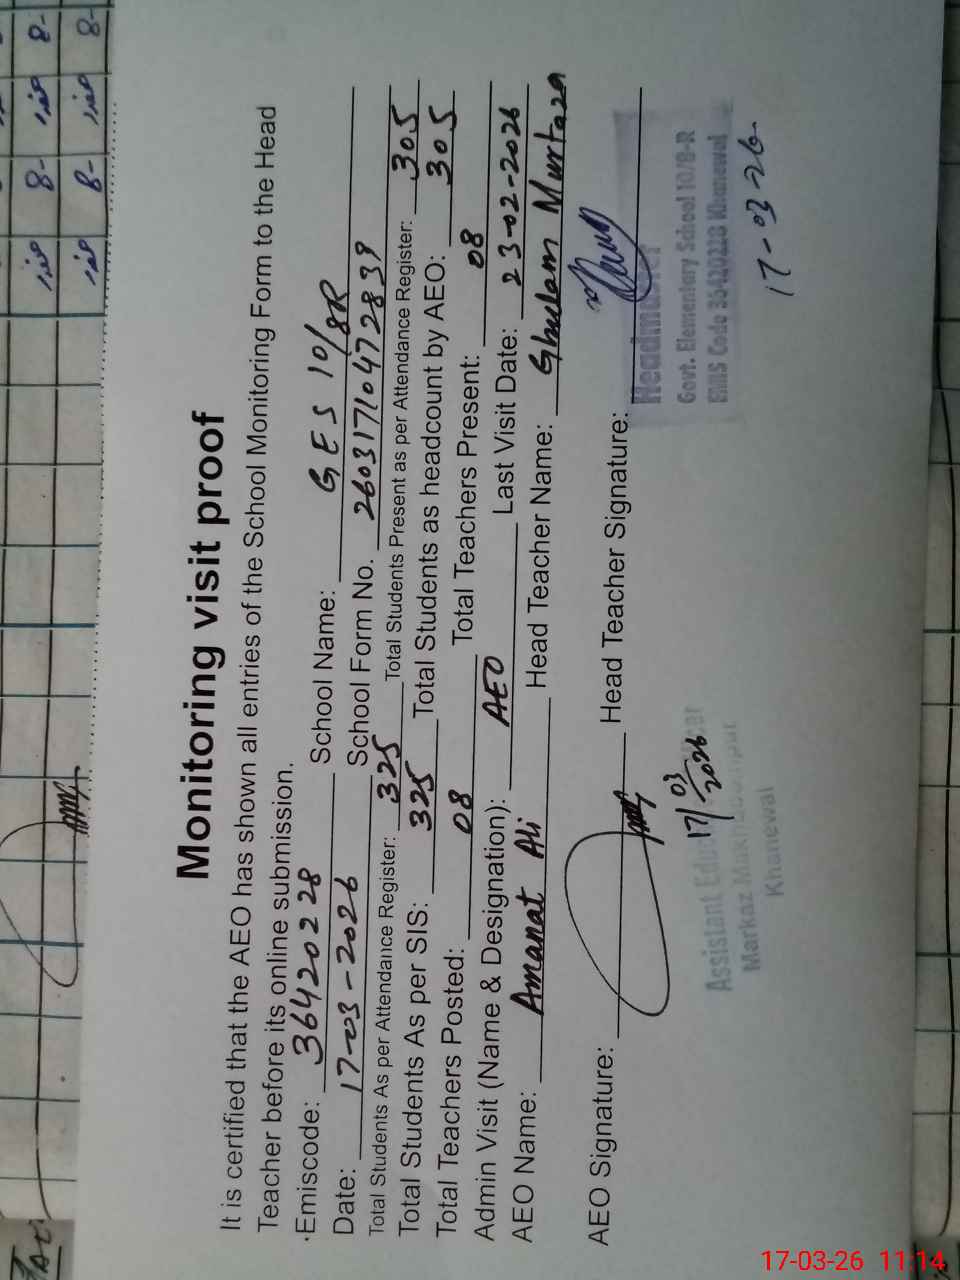 Monitoring visit proof
It is certified that the AEO has shown all entries of the School Monitoring Form to the Head
Teacher before its online submission.
Emiscode: 36420228 School Name: GES 10/8R
Date: 17-03-2026 School Form No. 260317104728 39
Total Students As per Attendance Register: 325 Total Students Present as per Attendance Register: 305
Total Students As per SIS: 325 Total Students as headcount by AEO: 305
Total Teachers Posted: 08 Total Teachers Present: 08
Admin Visit (Name & Designation): AEO Last Visit Date: 23-02-2026
AEO Name: Amanat Ali Head Teacher Name: Ghulam Murtaza
AEO Signature: Head Teacher Signature:
17/03/2026
Assistant
Markaz
Khanewal
Headmaster
Govt. Elementary School 10/8-R
EMIS Code 36420228 Khanewal
17-03-26
8- 8-
8- 8-
17-03-26 11:14